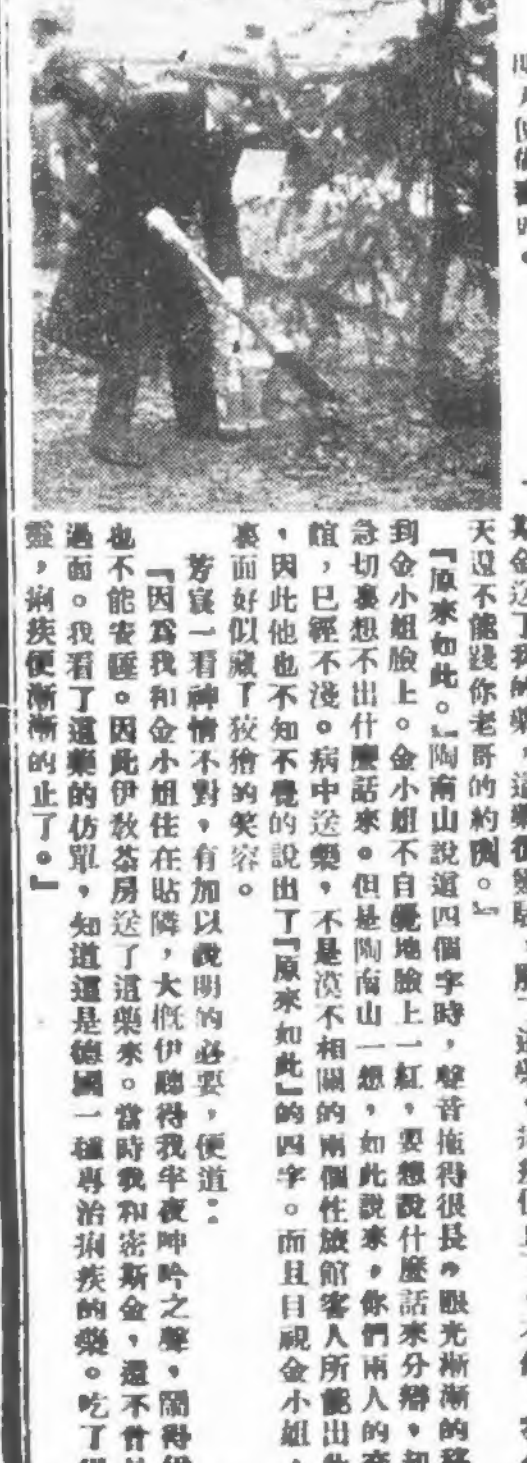 天還不能踐你老哥的約啊。』
『原來如此。』陶南山說道四個字時，聲音拖得很長，眼光漸漸的移
到金小姐臉上。金小姐不自覺地臉上一紅，要想說什麼話來分辯，却
急切裏想不出什麼話來。但是陶南山一想，如此說來，你們兩人的
館，已經不淺。病中送藥，不是漠不相關的兩個性旅館客人所能出
，因此他也不知不覺的說出了『原來如此』的四字。而且目視金小姐，
裏面好似藏了狡獪的笑容。
芳賓一看神情不對，有加以說明的必要，便道：
『因爲我和金小姐住在貼隣，大概伊聽得我半夜呻吟之聲，鬧得伊
也不能安睡。因此伊敎茶房送了這藥來。當時我和密斯金，還不曾
過面。我看了這藥的仿單，知道這是德國一種專治痢疾的藥。吃了
靈，痢疾便漸漸的止了。』